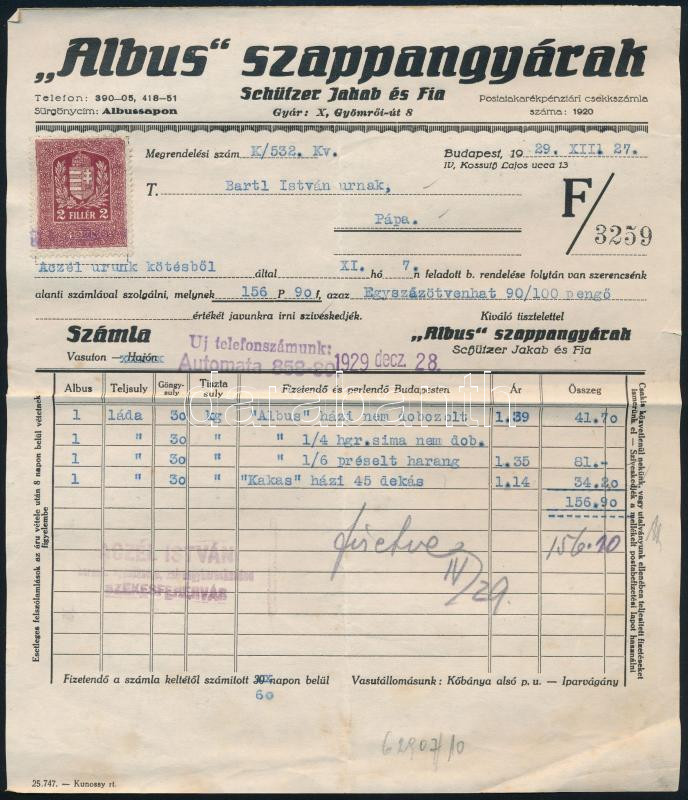 „Albus“ szappangyárak
Schützer Jakab és Fia
Telefon: 390—05, 418—51
Sürgönycím: Albussapon
Gyár: X, Gyömrői-út 8
Postatakarékpénztári csekkszámla
száma: 1920
2 FILLÉR 2
Megrendelési szám K/532. Kv.
Budapest, 19 29. XII. 27.
IV, Kossuth Lajos ucca 13
T. Bartl István urnak,
Pápa.
F/3259
Aczél urunk kötésből által XI. hó 7. n feladott b. rendelése folytán van szerencsénk
alanti számlával szolgálni, melynek 156 P 90 f, azaz Egyszázötvenhat 90/100 pengő
értékét javunkra irni sziveskedjék. Kiváló tisztelettel
Számla
Vasuton — Hajón
Uj telefonszámunk:
Automata
1929 decz. 28.
„Albus“ szappangyárak
Schützer Jakab és Fia
Albus Teljsuly Göngysuly Tiszta suly Fizetendő és perlendő Budapesten Ár Összeg
1 láda 30 kg "Albus" házi nem dobozolt 1.39 41.70
1 " 30 " " 1/4 hgr.sima nem dob.
1 " 30 " " 1/6 préselt harang 1.35 81.-
1 " 30 " "Kakas" házi 45 dekás 1.14 34.20
156.90
156.10
fizetve
IV/29.
ACZÉL ISTVÁN
SZÉKESFEHÉRVÁR
Esetleges felszólamlások az áru vétele után 8 napon belül vétetnek
figyelembe
Csakis közvetlenül nekünk, vagy utalványunk ellenében teljesített fizetéseket
ismerünk el — Sziveskedjék a mellékelt postabefizetési lapot használni
Fizetendő a számla keltétől számított 30 napon belül
60
Vasutállomásunk: Kőbánya alsó p. u. — Iparvágány
62907/10
25.747. — Kunossy rt.
darabanth